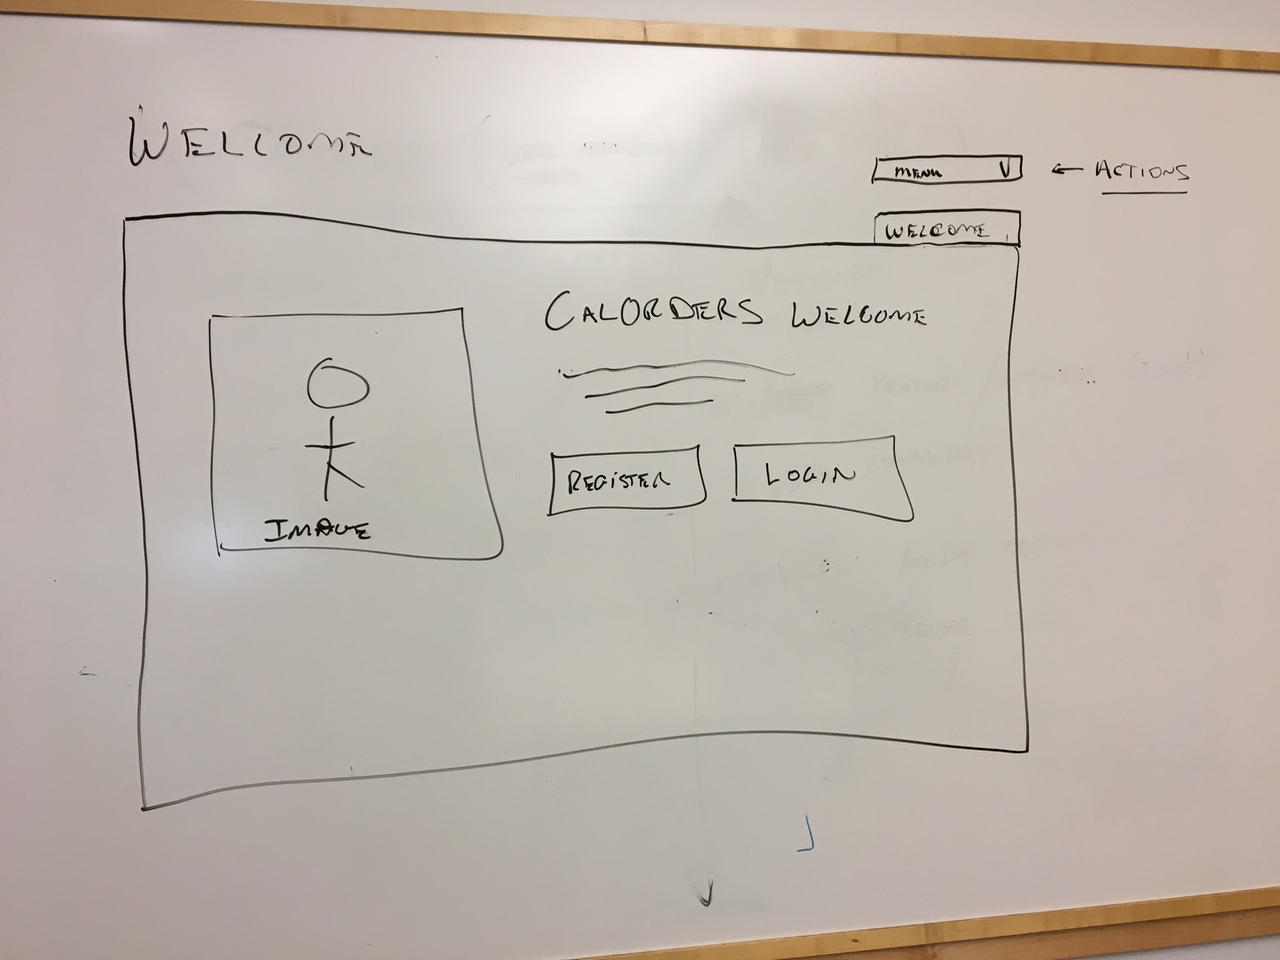 WELCOME
MENU V
← ACTIONS
WELCOME
CALORDERS WELCOME
REGISTER
LOGIN
IMAGE